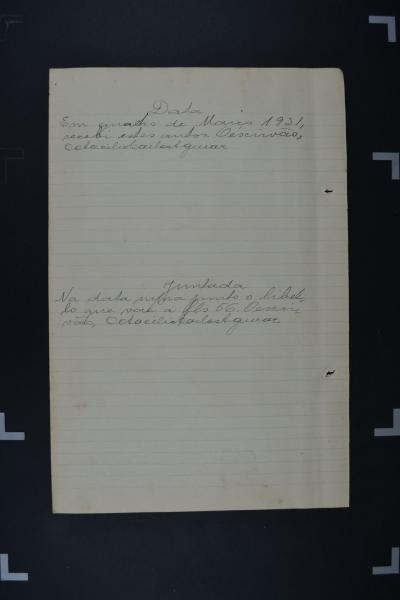 Data
Em quatro de Março 1931,
recebi estes autos. O escrivão,
Juntada
Na data supra junto o libel-
lo que vae a fls 56. O escri-
vão,